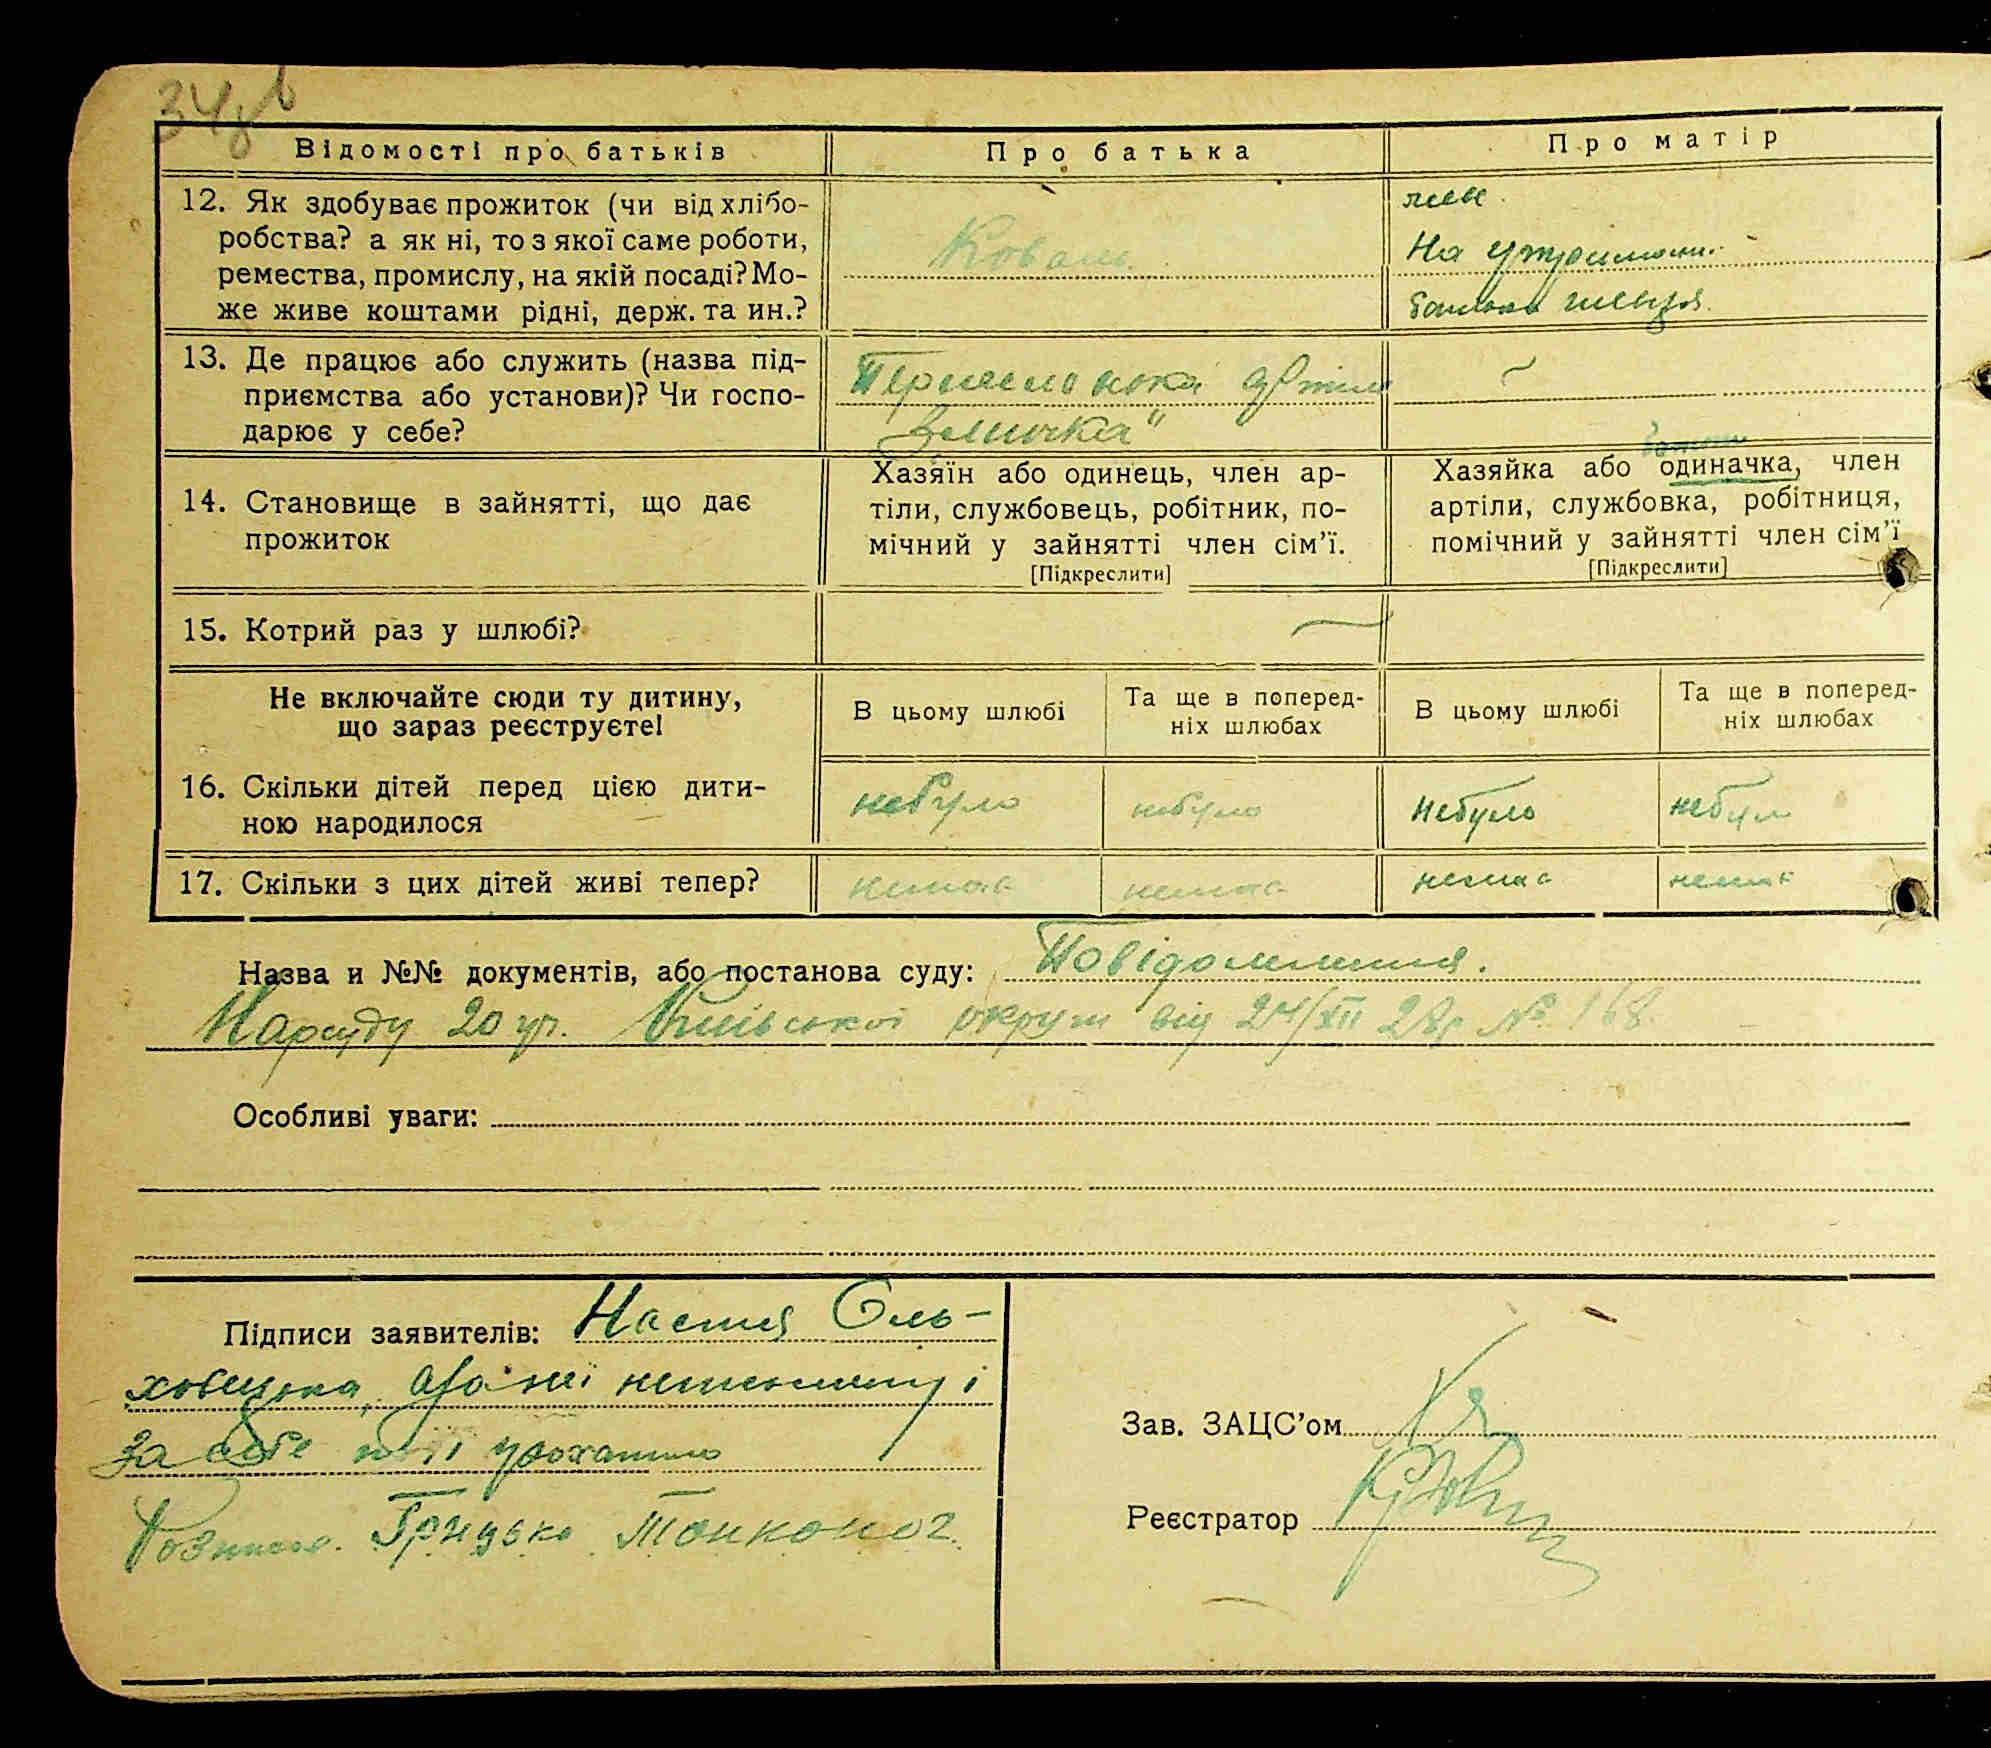 34
Відомості про батьків
Про батька
Про матір
12. Як здобуває прожиток (чи від хлібо-
робства? а як ні, то з якої саме роботи,
ремества, промислу, на якій посаді? Мо-
же живе коштами рідні, держ. та ин.?
Коваль
живе
На утриманні
батька
13. Де працює або служить (назва під-
приємства або установи)? Чи госпо-
дарює у себе?
артіль
"Змичка"
14. Становище в зайнятті, що дає
прожиток
Хазяїн або одинець, член ар-
тіли, службовець, робітник, по-
мічний у зайнятті член сім'ї.
[Підкреслити]
Хазяйка або одиначка, член
артіли, службовка, робітниця,
помічний у зайнятті член сім'ї
[Підкреслити]
15. Котрий раз у шлюбі?
Не включайте сюди ту дитину,
що зараз реєструєте!
В цьому шлюбі
Та ще в поперед-
ніх шлюбах
В цьому шлюбі
Та ще в поперед-
ніх шлюбах
16. Скільки дітей перед цією дити-
ною народилося
небуло
небуло
небуло
небуло
17. Скільки з цих дітей живі тепер?
немає
немає
немає
немає
Назва и №№ документів, або постанова суду: Повідомлення.
Нарсуду 20 уч. Київської округи від 24/XII 28р № 168
Особливі уваги:
Підписи заявителів: Настя Оль-
ховецька, а за неї неписьменну і
за себе
Розписався Грицько Тонконог
Зав. ЗАЦС'ом
Реєстратор